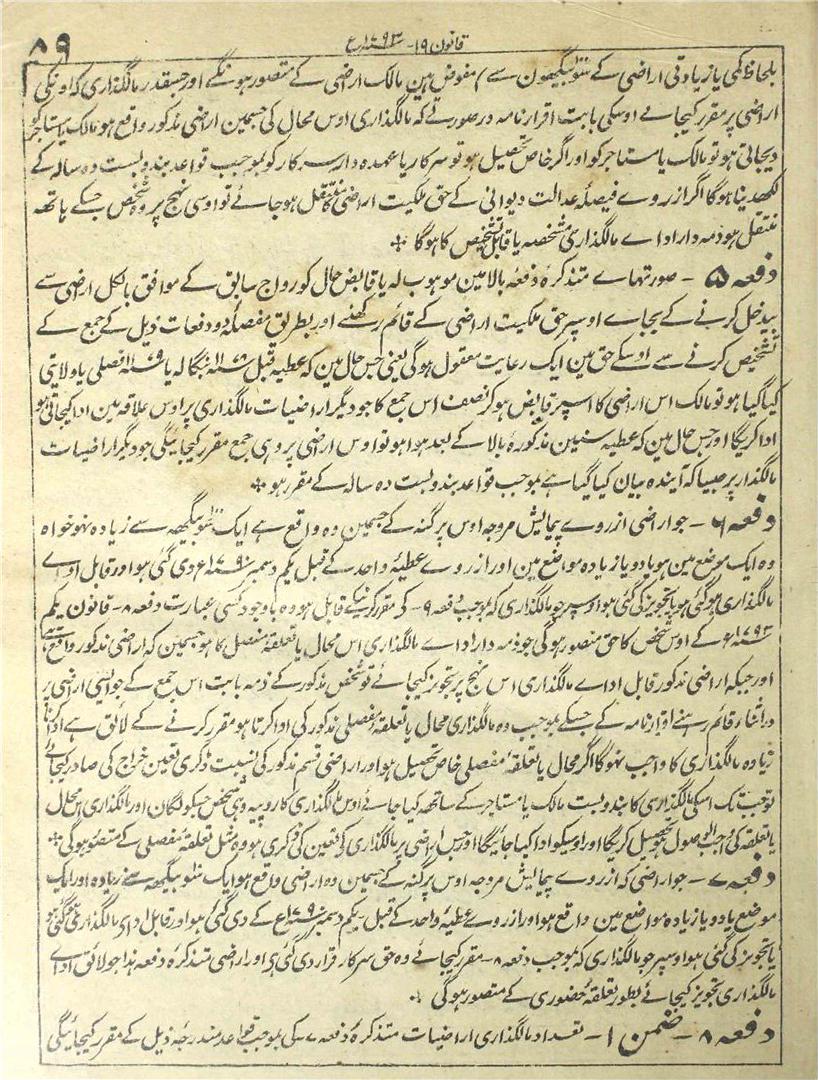 قانون ۱۹- ۱۷۹۳ع
۵۹
بلحاظ کمی یا زیادتی اراضی کے سو بیگھون سے مفوض ہین مالک اراضی کے متصور ہونگے اور جسقدر مالگذاری کہ اونکی
اراضی پر مقرر کیجائے اوسکی بابت اقرارنامہ درصورتے کہ مالگذاری اوس محال کی جسمین اراضی مذکور واقع ہو مالک یا مستاجر کو
دیجاتی ہو تو مالک یا مستاجر کو اور اگر خاص تحصیل ہو تو سرکار یا عہدہ دار سرکار کو بموجب قواعد بندوبست دہ سالہ کے
لکھدینا ہوگا اگر ازروے فیصلہ عدالت دیوانی کے حق ملکیت اراضی منتقل ہو جائے تو اوسی نہج پر وہ شخص جسکے ہاتھ
منتقل ہو ذمہ دار اداے مالگذاری مشخصہ یا قابل تشخیص کا ہوگا
دفعہ ۵ - صورتہاے متذکرۂ دفعۂ بالا مین موہوب لہ یا قابض حال کو رواج سابق کے موافق بالکل اراضی سے
بیدخل کرنے کے بجاے اوسپر حق ملکیت اراضی کے قائم رکھنے اور بطریق مفصلۂ دفعات ذیل کے جمع کے
تشخیص کرنے سے اوسکے حق مین ایک رعایت معقول ہوگی یعنی جس حال مین کہ عطیہ قبل ۱۱۷۸ بنگالہ یا ۱۱۷۹ فصلی یا ولایتی
کیا گیا ہو تو مالک اس اراضی کا اسپر قابض ہوکر نصف اس جمع کا جو دیگر اراضیات مالگذاری پر اوس علاقہ مین ادا کیجاتی ہو
ادا کریگا اور جس حال مین کہ عطیہ سنین مذکورۂ بالا کے بعد ہوا ہو تو اوس اراضی پر وہی جمع مقرر کیجائیگی جو دیگر اراضیات
مالگذار پر جیسا کہ آیندہ بیان کیا گیا ہے بموجب قواعد بندوبست دہ سالہ کے مقرر ہو
دفعہ ۶ - جو اراضی ازروے پیمایش مروجہ اوس پرگنہ کے جسمین وہ واقع ہے ایک سو بیگھہ سے زیادہ نہو خواہ
وہ ایک موضع مین ہو یا دو یا زیادہ مواضع مین اور ازروے عطیۂ واحد کے قبل یکم دسمبر ۱۷۹۰ع دی گئی ہو اور قابل اداے
مالگذاری ہوگئی ہو یا تجویز کی گئی ہو اوسپر جو مالگذاری کہ بموجب دفعہ ۹- کے مقرر کرنیکے قابل ہو وہ باوجود کسی عبارت دفعہ ۸- قانون یکم
۱۷۹۳ع کے اوس شخص کا حق متصور ہوگی جو ذمہ دار اداے مالگذاری اس محال یا تعلقۂ مفصل کا ہو جسمین کہ اراضی مذکور واقع ہے
اور جبکہ اراضی مذکور قابل اداے مالگذاری اس نہج پر تجویز کیجائے تو شخص مذکور کے ذمہ بابت اس جمع کے جو ایسی اراضی پر
دراثناء قائم رہنے اقرارنامہ کے جسکے بموجب وہ مالگذاری محال یا تعلقۂ مفصلی مذکور کی ادا کرتا ہو مقرر کرنے کے لائق ہے ادا کرنا
زیادہ مالگذاری کا واجب نہوگا اگر محال یا تعلقۂ مفصلی خاص تحصیل ہو اور اراضی قسم مذکور کی نسبت ڈگری تعین خراج کی صادر کیجائے
تو جب تک اسکی مالگذاری کا بندوبست مالک یا مستاجر کے ساتھ کیا جائے اوس مالگذاری کا روپیہ وہی شخص جسکو لگان اور مالگذاری اس محال
یا تعلقہ کی واجب الوصول ہو تحصیل کریگا اور اوسیکو ادا کیا جائیگا اور جس اراضی پر مالگذاری کی تعین کی ڈگری ہو وہ مثل تعلقۂ مفصلی کے متصور ہوگی
دفعہ ۷ - جو اراضی کہ ازروے پیمایش مروجہ اوس پرگنہ کے جسمین وہ اراضی واقع ہو ایک سو بیگھہ سے زیادہ اور ایک
موضع یا دو یا زیادہ مواضع مین واقع ہو اور ازروے عطیۂ واحد کے قبل - یکم دسمبر ۱۷۹۰ع کے دی گئی ہو اور قابل اداے مالگذاری ہوگئی ہو
یا تجویز کی گئی ہو اوسپر جو مالگذاری کہ بموجب دفعہ ۸- مقرر کیجائے وہ حق سرکار قرار دی گئی ہی اور اراضی متذکرۂ دفعہ ہذا جو لائق اداے
مالگذاری تجویز کیجائے بطور تعلقۂ حضوری کے متصور ہوگی
دفعہ ۸ - ضمن ۱ - تعداد مالگذاری اراضیات متذکرۂ دفعہ ۷- کی بموجب قواعد مندرجۂ ذیل کے مقرر کیجائیگی